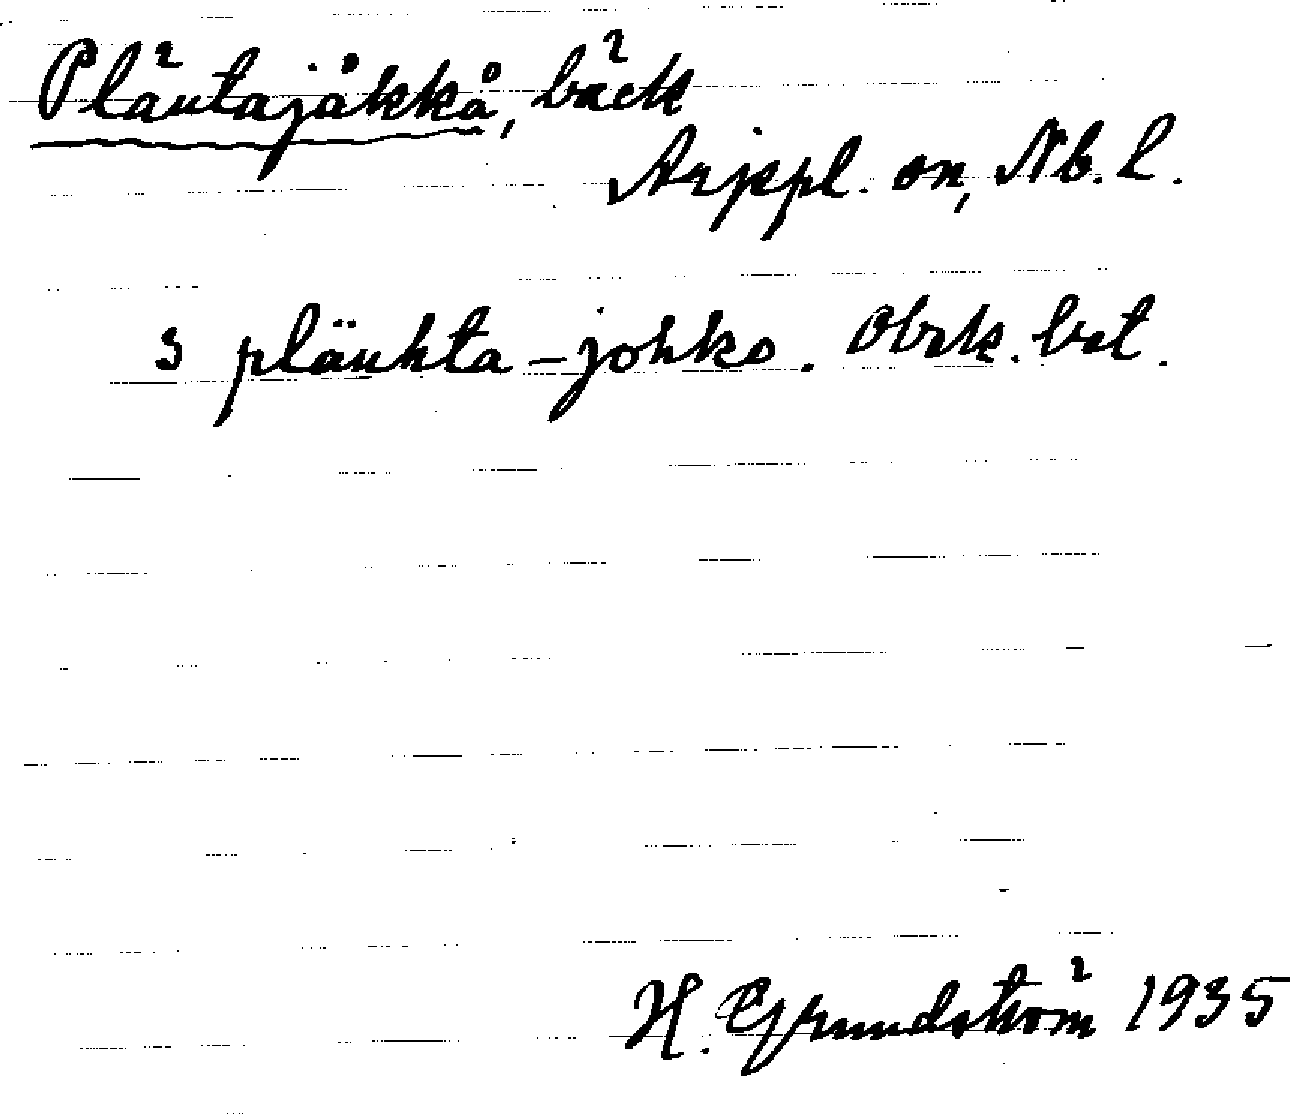 Pläutajåkkå, bäck
Arjepl. sn, Nb. l.
3 pläuhta-johko. Obek. bet.
H. Grundström 1935